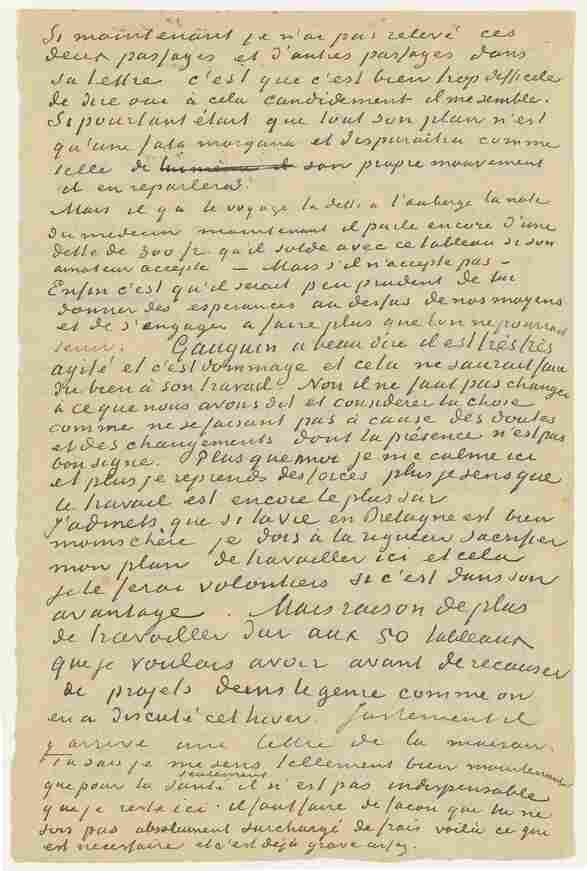 Si maintenant je n'ai pas relevé ces
deux passages et d'autres passages dans
sa lettre c'est que c'est bien trop difficile
de dire oui à cela candidement il me semble.
Si pourtant était que tout son plan n'est
qu'une fata morgana et disparaitra comme
telle de lui même il son propre mouvement
il en reparlera?
Mais il y a le voyage la dette a l'auberge la note
du medecin maintenant il parle encore d'une
dette de 300 fr. qu'il solde avec ce tableau si son
amateur accepte — Mais s'il n'accepte pas –
Enfin c'est qu'il serait peu prudent de lui
donner des esperances au dessus de nos moyens
et de s'engager a faire plus que l'on ne pourrait
tenir. Gauguin a beau dire il est très très
agité et c'est dommage et cela ne saurait faire
du bien à son travail Non il ne faut pas changer
à ce que nous avons dit et considérer la chose
comme ne se faisant pas à cause des doutes
et des changements dont la présence n'est pas
bon signe. Plus que moi je me calme ici
et plus je reprends des forces plus je sens que
le travail est encore le plus sur
J'admets que si la vie en Bretagne est bien
moins chère je dois à la rigueur sacrifier
mon plan de travailler ici et cela
je le ferai volontiers si c'est dans son
avantage. Mais raison de plus
de travailler dur aux 50 tableaux
que je voulais avoir avant de recauser
de projets dans le genre comme on
en a discuté cet hiver. Justement il
y arrive une lettre de la maison.
Tu sais je me sens tellement bien maintenant
que pour la santé seulement il n'est pas indispensable
que je reste ici. il faut faire de façon que tu ne
sois pas absolument surchargé de frais voilà ce qui
est necessaire et c'est déjà grave assez.